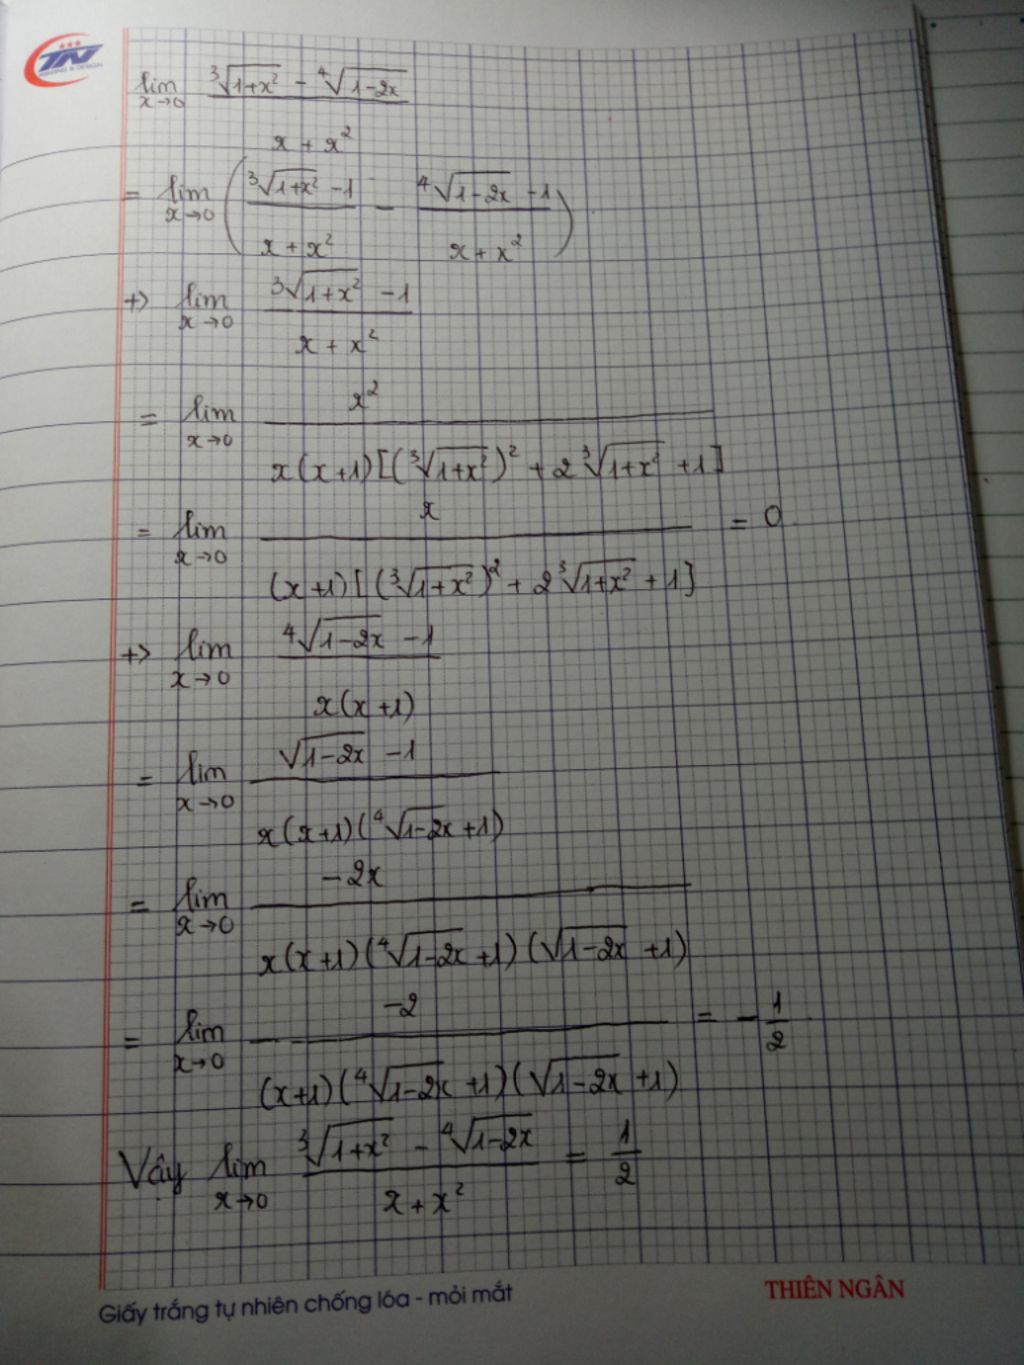 TN
PRINTING & DESIGN
lim x→0 (∛(1+x²) - ∜(1-2x)) / (x + x²)
= lim x→0 ( (∛(1+x²) - 1) / (x + x²) - (∜(1-2x) - 1) / (x + x²) )
+> lim x→0 (∛(1+x²) - 1) / (x + x²)
= lim x→0 x² / (x(x+1)[(∛(1+x²))² + 2∛(1+x²) + 1])
= lim x→0 x / ((x+1)[(∛(1+x²))² + 2∛(1+x²) + 1]) = 0
+> lim x→0 (∜(1-2x) - 1) / (x(x+1))
= lim x→0 (√(1-2x) - 1) / (x(x+1)(∜(1-2x) + 1))
= lim x→0 -2x / (x(x+1)(∜(1-2x) + 1)(√(1-2x) + 1))
= lim x→0 -2 / ((x+1)(∜(1-2x) + 1)(√(1-2x) + 1)) = -1/2
Vậy lim x→0 (∛(1+x²) - ∜(1-2x)) / (x + x²) = 1/2
Giấy trắng tự nhiên chống lóa - mỏi mắt
THIÊN NGÂN